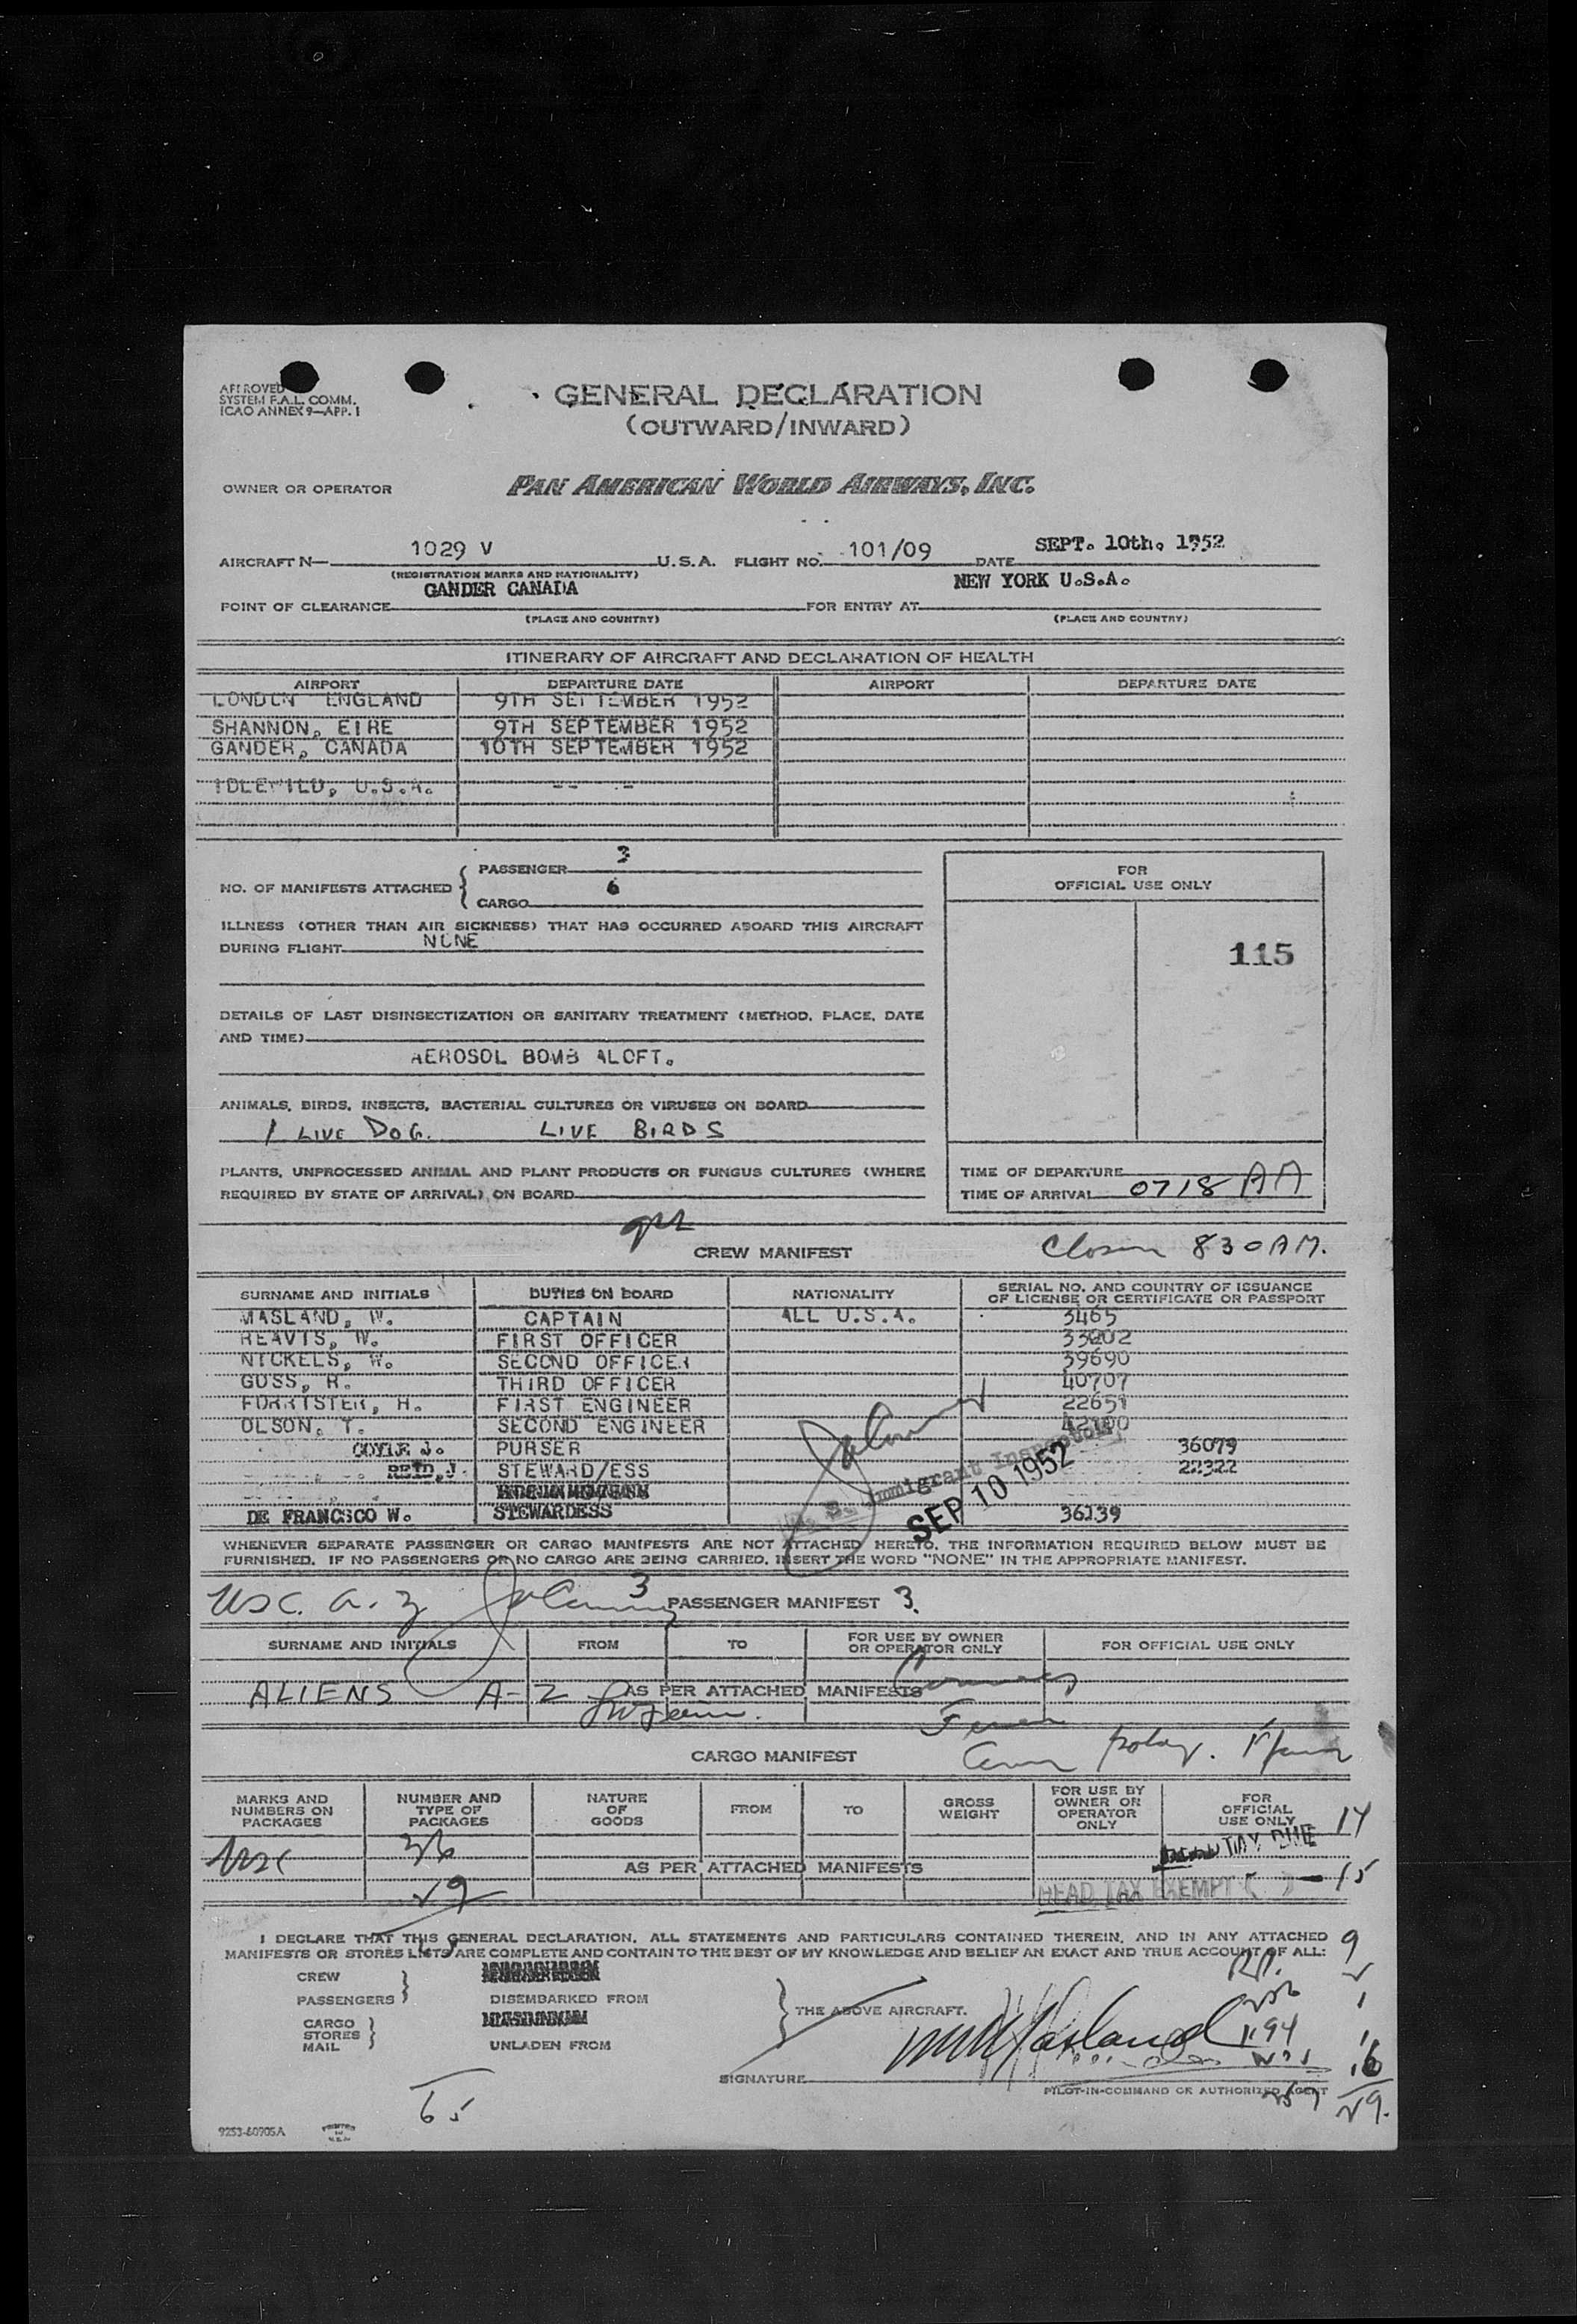 APPROVED
SYSTEM F.A.L. COMM.
ICAO ANNEX 9—APP. 1
GENERAL DECLARATION
(OUTWARD/INWARD)
OWNER OR OPERATOR PAN AMERICAN WORLD AIRWAYS, INC.
AIRCRAFT N— 1029 V U.S.A. FLIGHT NO. 101/09 DATE SEPT. 10th. 1952
(REGISTRATION MARKS AND NATIONALITY)
POINT OF CLEARANCE GANDER CANADA FOR ENTRY AT NEW YORK U.S.A.
(PLACE AND COUNTRY) (PLACE AND COUNTRY)
ITINERARY OF AIRCRAFT AND DECLARATION OF HEALTH
AIRPORT DEPARTURE DATE AIRPORT DEPARTURE DATE
LONDON ENGLAND 9TH SEPTEMBER 1952
SHANNON, EIRE 9TH SEPTEMBER 1952
GANDER, CANADA 10TH SEPTEMBER 1952
IDLEWILD, U.S.A. -- --
NO. OF MANIFESTS ATTACHED
PASSENGER 3
CARGO 6
FOR
OFFICIAL USE ONLY
115
ILLNESS (OTHER THAN AIR SICKNESS) THAT HAS OCCURRED ABOARD THIS AIRCRAFT
DURING FLIGHT NONE
DETAILS OF LAST DISINSECTIZATION OR SANITARY TREATMENT (METHOD, PLACE, DATE
AND TIME)
AEROSOL BOMB ALOFT.
ANIMALS, BIRDS, INSECTS, BACTERIAL CULTURES OR VIRUSES ON BOARD
1 LIVE DOG. LIVE BIRDS
PLANTS, UNPROCESSED ANIMAL AND PLANT PRODUCTS OR FUNGUS CULTURES (WHERE
REQUIRED BY STATE OF ARRIVAL) ON BOARD
TIME OF DEPARTURE
TIME OF ARRIVAL 0718
CREW MANIFEST
830 AM.
SURNAME AND INITIALS DUTIES ON BOARD NATIONALITY SERIAL NO. AND COUNTRY OF ISSUANCE
OF LICENSE OR CERTIFICATE OR PASSPORT
MASLAND, W. CAPTAIN ALL U.S.A. 3465
REAVIS, W. FIRST OFFICER 33202
NICKELS, W. SECOND OFFICER 39690
GOSS, R. THIRD OFFICER 40707
FORRISTER, H. FIRST ENGINEER 22651
OLSON, T. SECOND ENGINEER
COYLE J. PURSER 36079
REID,J. STEWARD/ESS 22322
DE FRANCSCO W. STEWARDESS 36139
U. S. Immigrant Inspector
SEP 10 1952
WHENEVER SEPARATE PASSENGER OR CARGO MANIFESTS ARE NOT ATTACHED HERETO, THE INFORMATION REQUIRED BELOW MUST BE
FURNISHED. IF NO PASSENGERS OR NO CARGO ARE BEING CARRIED, INSERT THE WORD "NONE" IN THE APPROPRIATE MANIFEST.
USC. a. z 3 PASSENGER MANIFEST 3.
SURNAME AND INITIALS FROM TO FOR USE BY OWNER
OR OPERATOR ONLY FOR OFFICIAL USE ONLY
ALIENS A-Z AS PER ATTACHED MANIFESTS
CARGO MANIFEST
MARKS AND
NUMBERS ON
PACKAGES
NUMBER AND
TYPE OF
PACKAGES
NATURE
OF
GOODS
FROM TO GROSS
WEIGHT
FOR USE BY
OWNER OR
OPERATOR
ONLY
FOR
OFFICIAL
USE ONLY
14
usc 36 TAX DUE
AS PER ATTACHED MANIFESTS
HEAD TAX EXEMPT ( ) — 15
I DECLARE THAT THIS GENERAL DECLARATION, ALL STATEMENTS AND PARTICULARS CONTAINED THEREIN, AND IN ANY ATTACHED
MANIFESTS OR STORES LISTS ARE COMPLETE AND CONTAIN TO THE BEST OF MY KNOWLEDGE AND BELIEF AN EXACT AND TRUE ACCOUNT OF ALL:
9
CREW
PASSENGERS
DISEMBARKED FROM
CARGO
STORES
MAIL
UNLADEN FROM
THE ABOVE AIRCRAFT.
SIGNATURE W Masland
PILOT-IN-COMMAND OR AUTHORIZED AGENT
65
9253-60905A
PRINTED
IN
U.S.A.